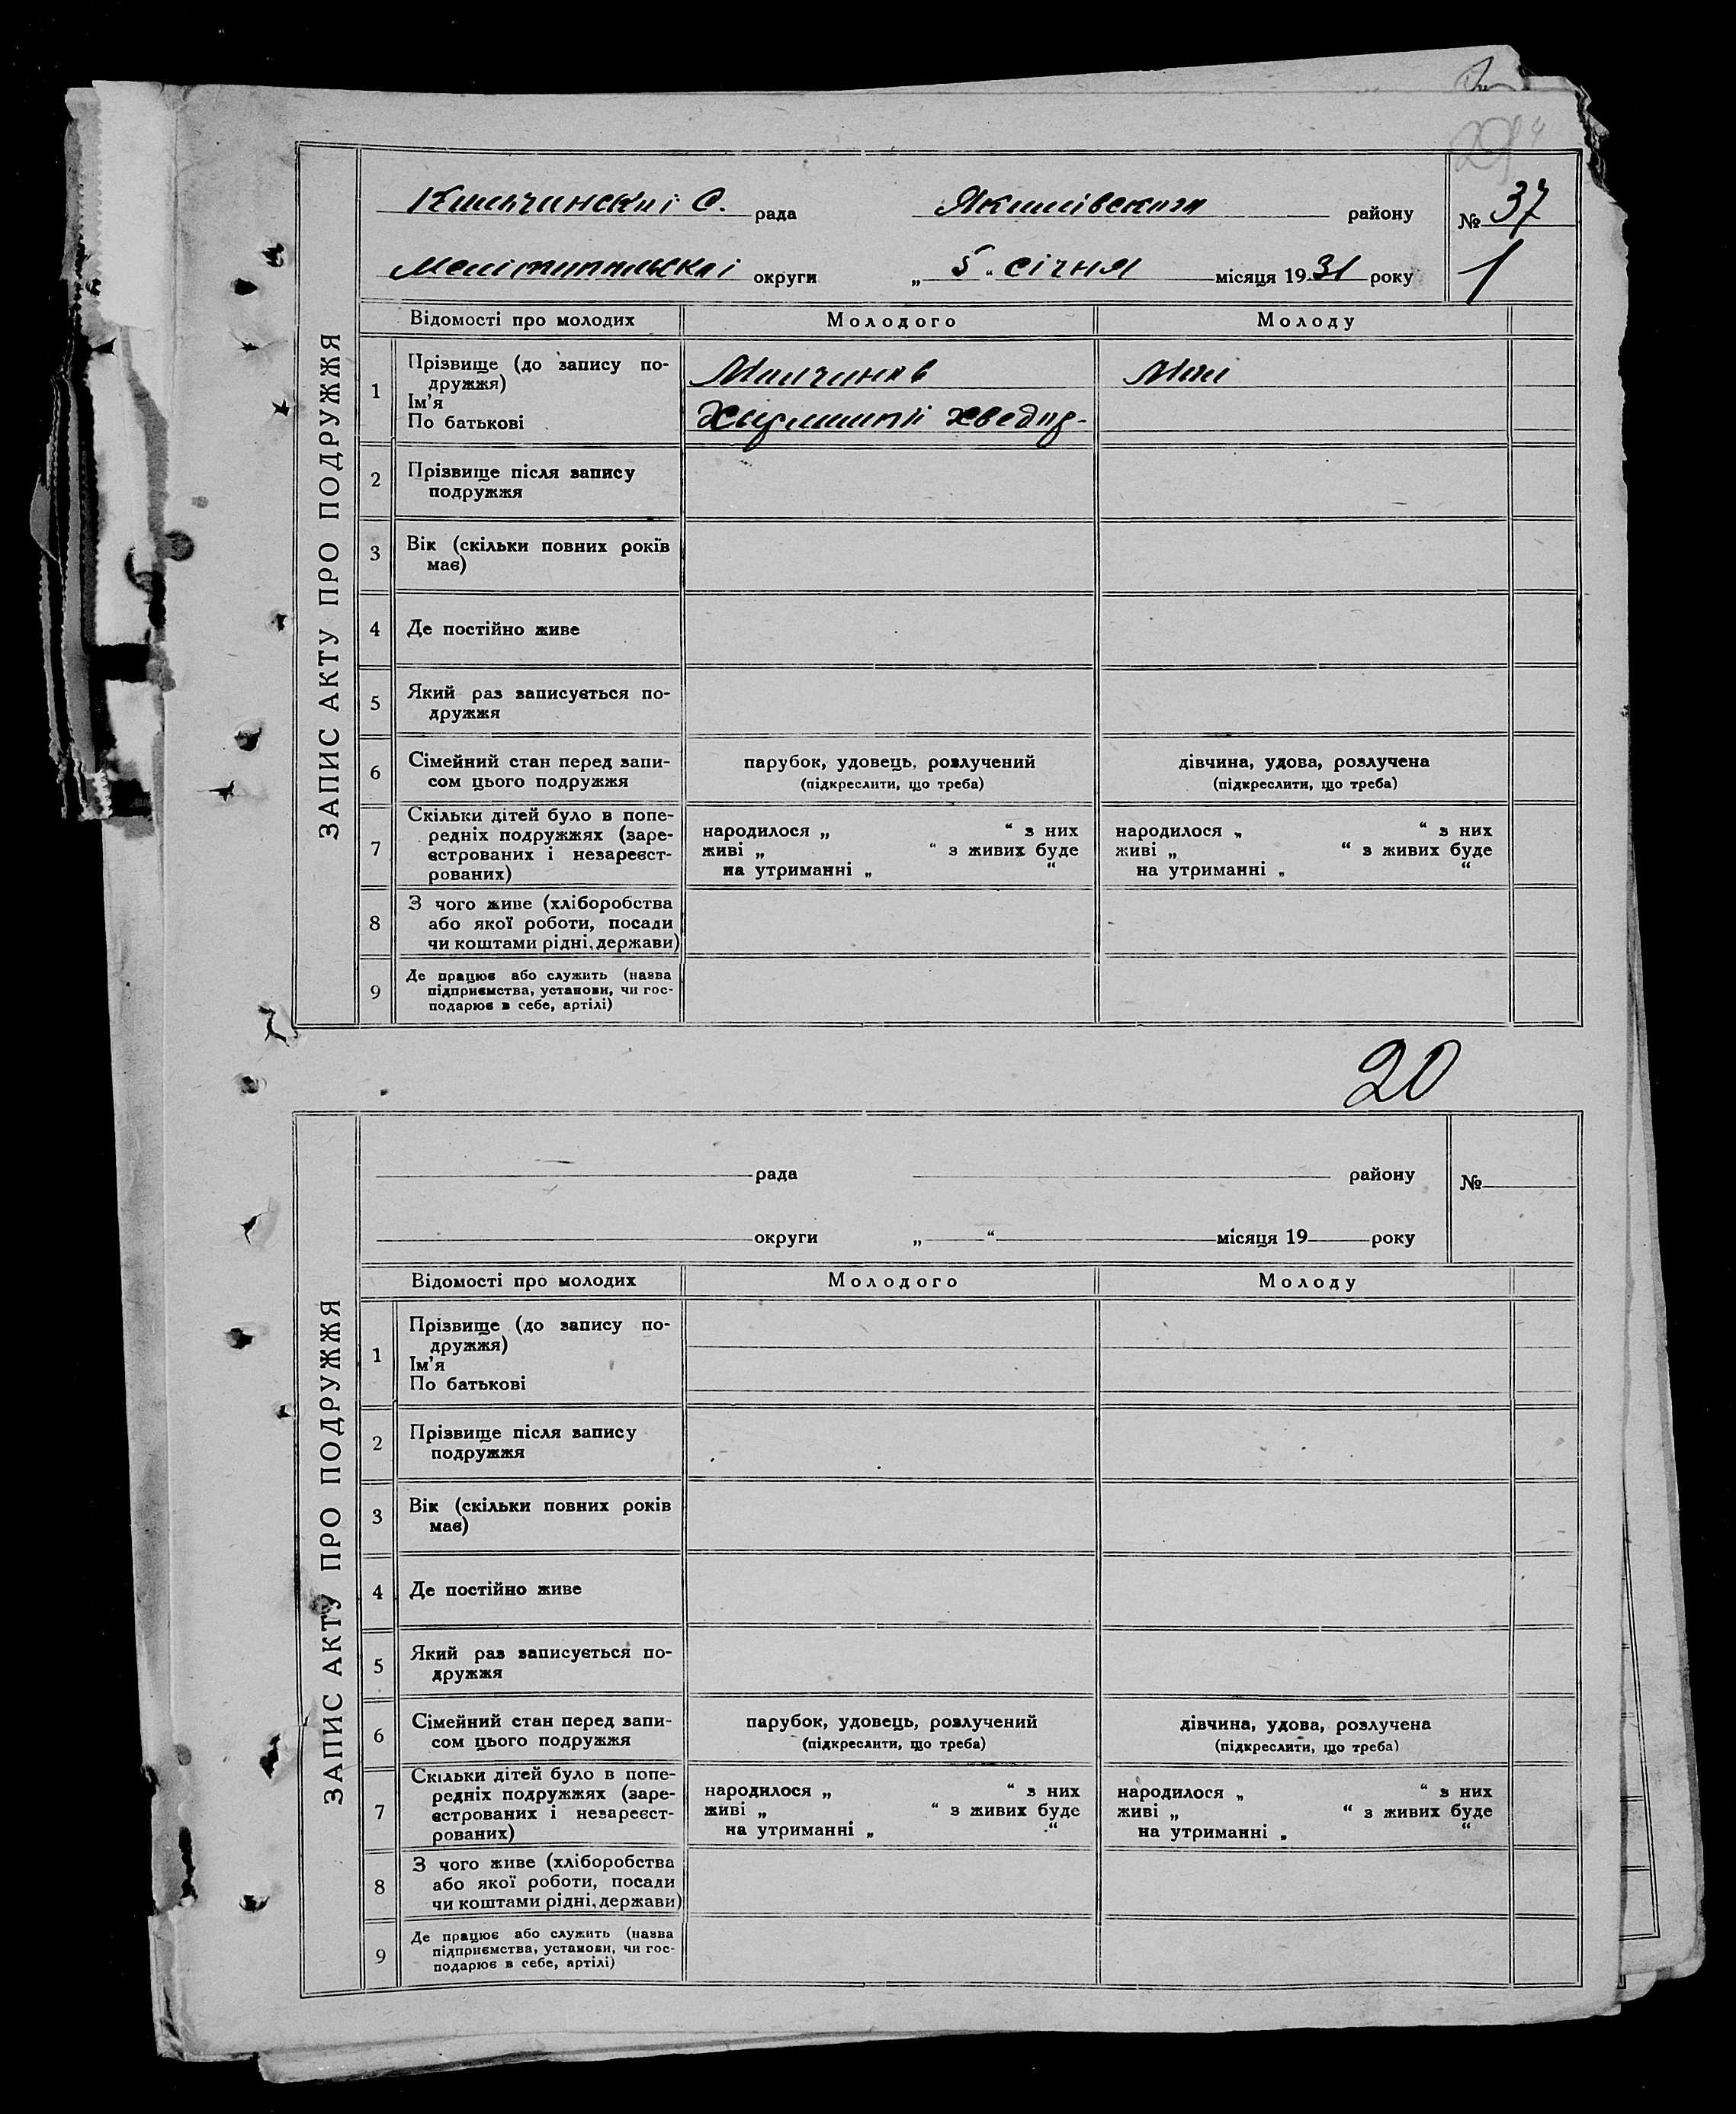 37
рада
Якимівського
району
№ 37
1
Мелітопольскої
округи
„ 5 “ січня
місяця 19 31 року
ЗАПИС АКТУ ПРО ПОДРУЖЖЯ
Відомості про молодих
Молодого
Молоду
1
Прізвище (до запису по-
дружжя)
Ім’я
По батькові
2
Прізвище після запису
подружжя
3
Вік (скільки повних років
має)
4
Де постійно живе
5
Який раз записується по-
дружжя
6
Сімейний стан перед запи-
сом цього подружжя
парубок, удовець, розлучений
(підкреслити, що треба)
дівчина, удова, розлучена
(підкреслити, що треба)
7
Скільки дітей було в попе-
редніх подружжях (заре-
єстрованих і незареєст-
рованих)
народилося „ “ з них
живі „ “ з живих буде
на утриманні „ “
народилося „ “ з них
живі „ “ з живих буде
на утриманні „ “
8
З чого живе (хліборобства
або якої роботи, посади
чи коштами рідні, держави)
9
Де працює або служить (назва
підприємства, установи, чи гос-
подарює в себе, артілі)
20
рада
району
№
округи
„ “
місяця 19 року
ЗАПИС АКТУ ПРО ПОДРУЖЖЯ
Відомості про молодих
Молодого
Молоду
1
Прізвище (до запису по-
дружжя)
Ім’я
По батькові
2
Прізвище після запису
подружжя
3
Вік (скільки повних років
має)
4
Де постійно живе
5
Який раз записується по-
дружжя
6
Сімейний стан перед запи-
сом цього подружжя
парубок, удовець, розлучений
(підкреслити, що треба)
дівчина, удова, розлучена
(підкреслити, що треба)
7
Скільки дітей було в попе-
редніх подружжях (заре-
єстрованих і незареєст-
рованих)
народилося „ “ з них
живі „ “ з живих буде
на утриманні „ “
народилося „ “ з них
живі „ “ з живих буде
на утриманні „ “
8
З чого живе (хліборобства
або якої роботи, посади
чи коштами рідні, держави)
9
Де працює або служить (назва
підприємства, установи, чи гос-
подарює в себе, артілі)